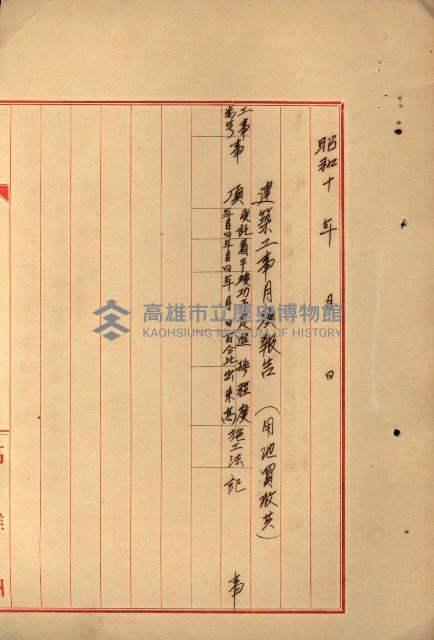 昭和十年　月　日
建築工事月次報告（用地買收共）
工事番号
事項
受託年月日
着手年月日
竣功
年月日
進捗程度
百分比
出来高
施工法
記事
高雄州
高雄市立歷史博物館
KAOHSIUNG MUSEUM OF HISTORY